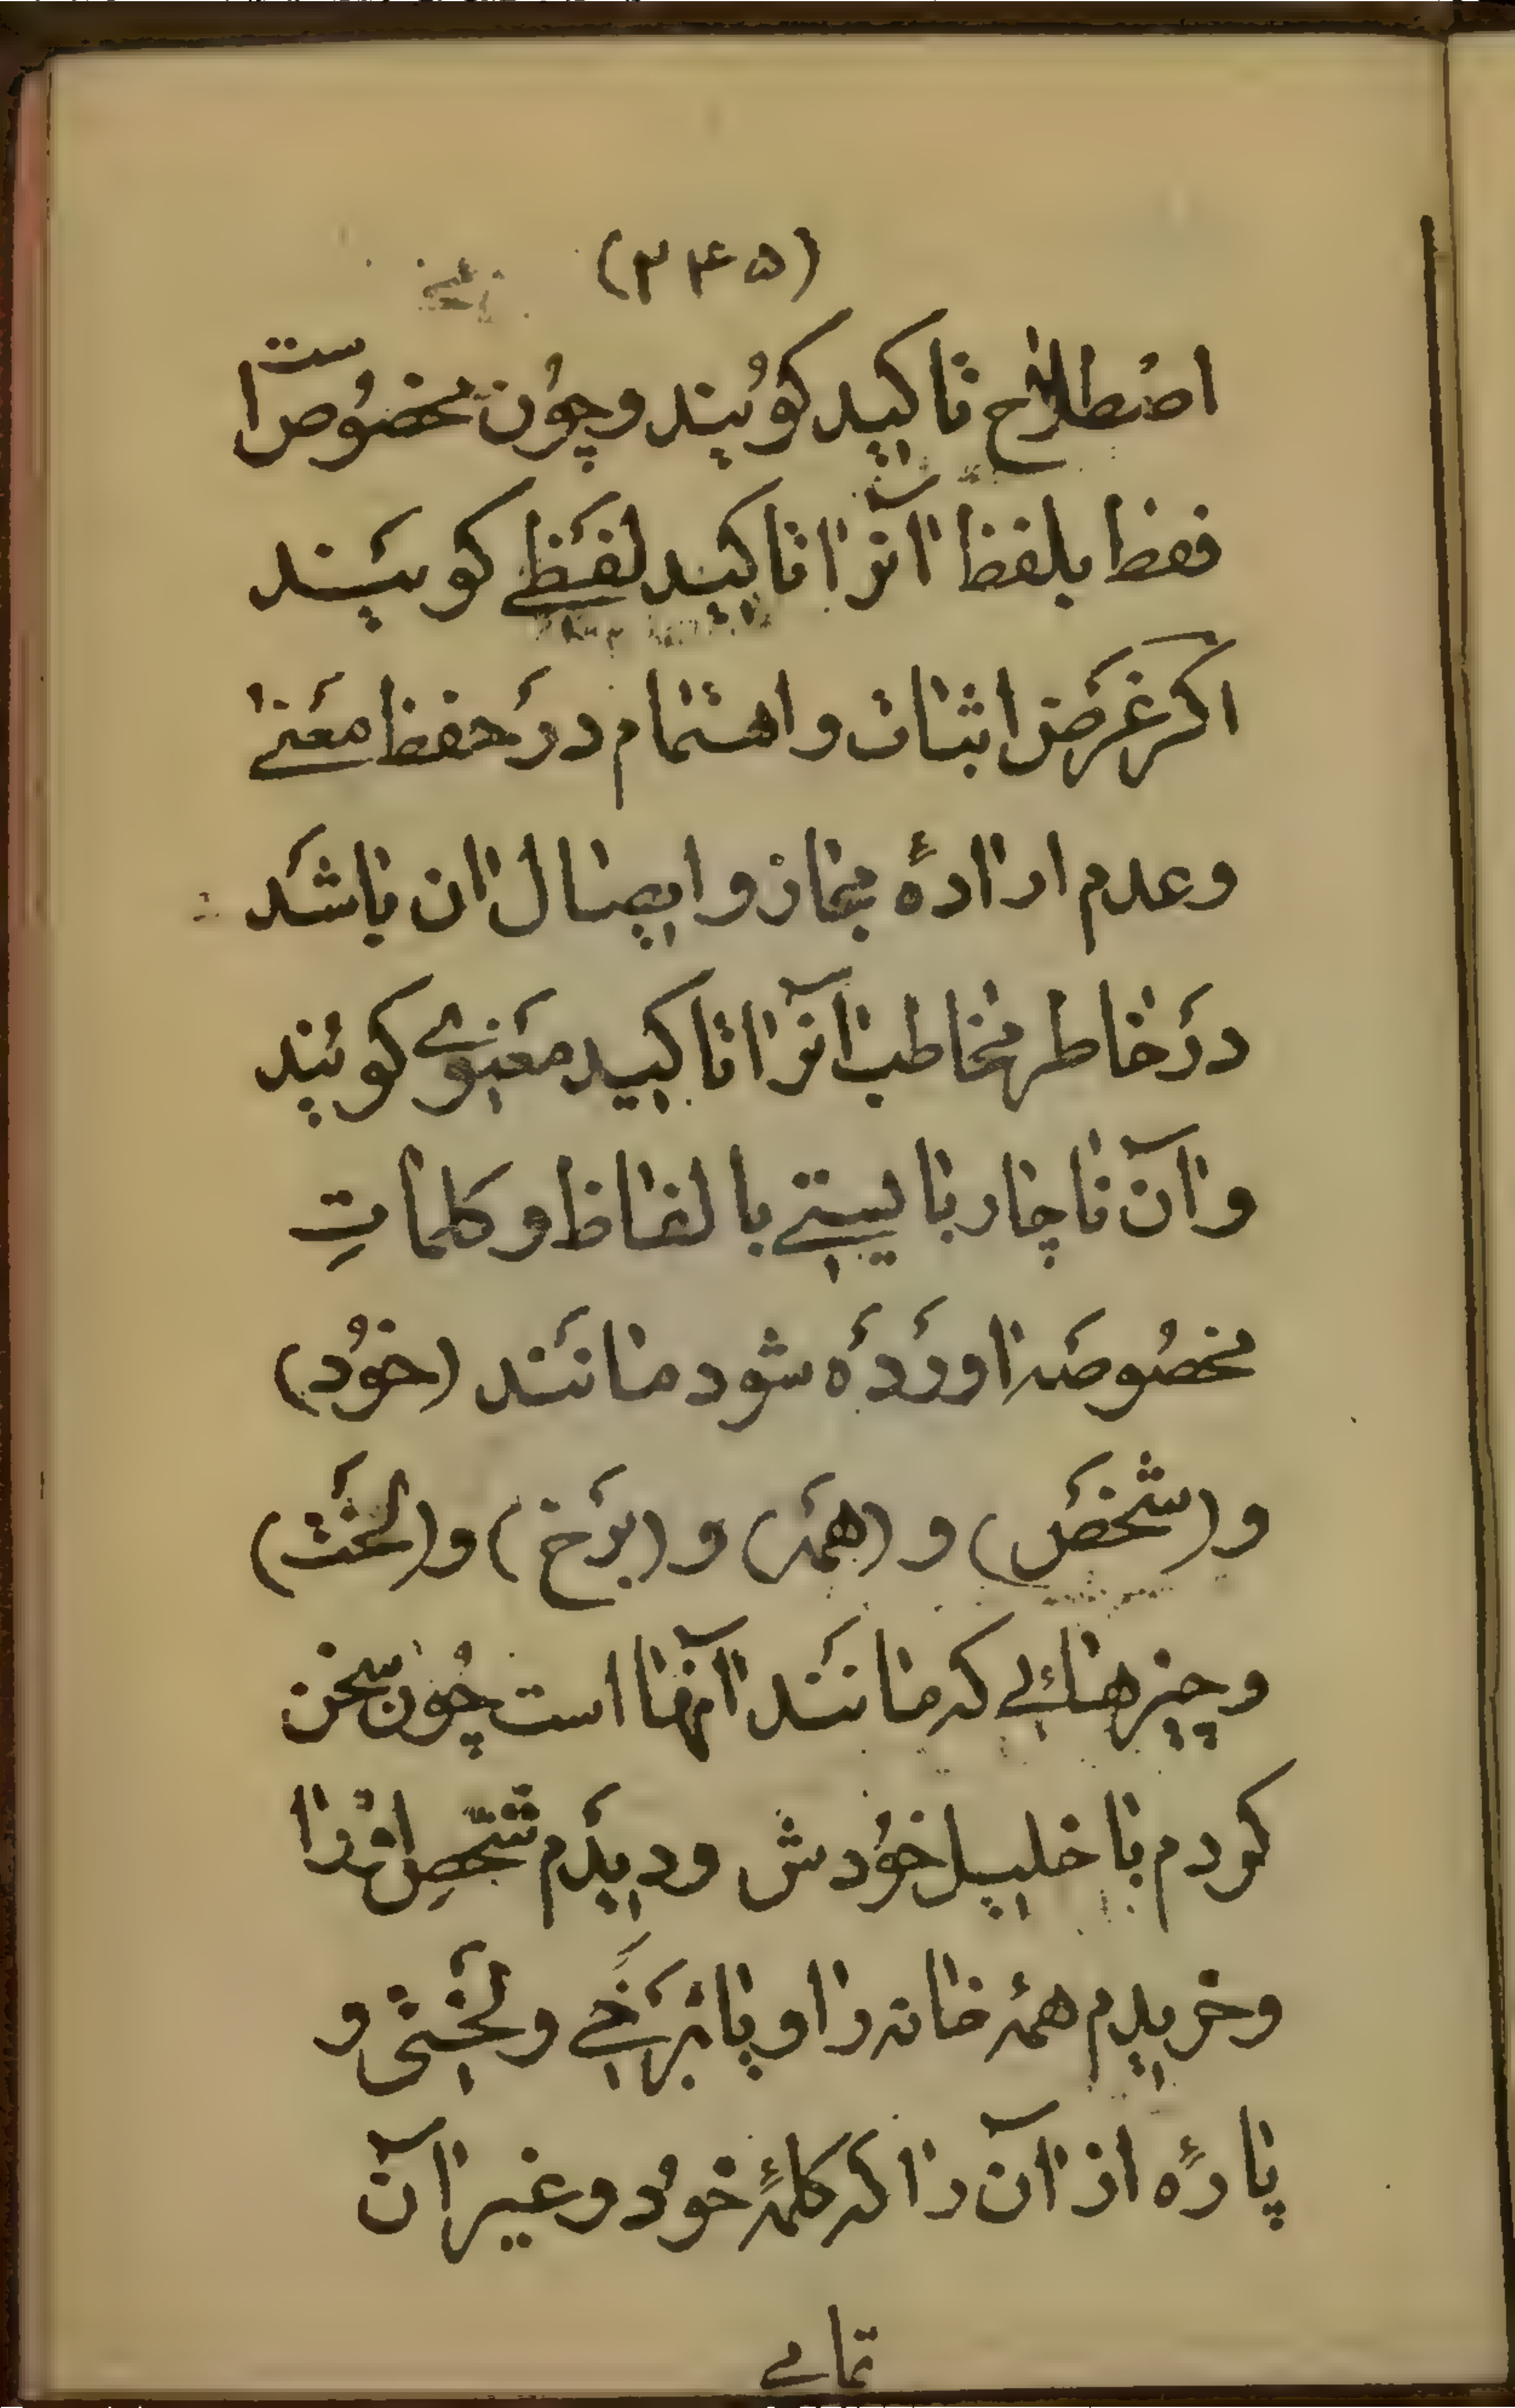 (۳۴۵)
اصْطلاح تاكيد كوُيند و چوُن مخصُوص است
فقط بلفظ آنرا تاكيد لفَظے كويَند
اكر غَرَض اثبات و اهتمام دَر حفظ مَعنے
و عدم ارادهٔ مجاز و ايصال ان باشَد
دَر خاطر مخاطب آنرا تاكيد مَعنوے كويند
و آن ناچار بايستے بالفاظ و كلماتِ
مخصُوصَه اوردَه شود مانَند (خوُد)
و (شخصَ) و (همَه) و (بَرخ) و (لَخت)
و چيزهائے كه مانَند آنها است چُون سخن
كردم با خليل خوُدش و ديدَم شخصِ اوْرا
و خريدم همه خانه را و يا بَرَخے و لَختى و
پارهٔ از آن را كه كلمهٔ خوُد و غير آن
تمامے